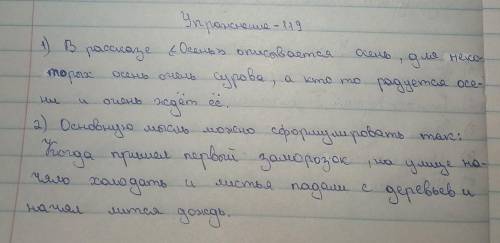 Упражнение-119
1) В рассказе «Осень» описывается осень, для неко-
торых осень очень сурова, а кто то радуется осе-
ни и очень ждёт её.
2) Основную мысль можно сформулировать так:
Когда пришел первый заморозок, на улице на-
чало холодать и листья падали с деревьев и
начал лится дождь.